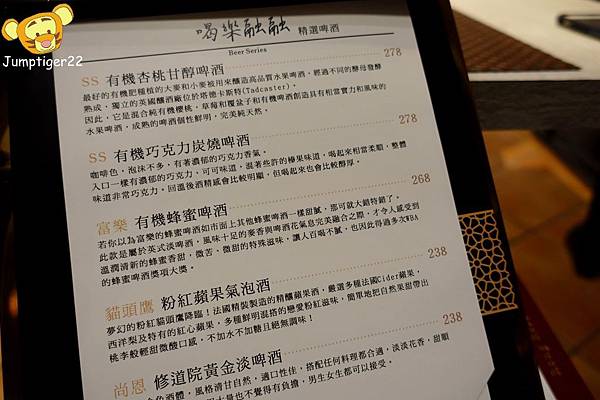 Jumptiger22
喝樂融融 精選啤酒
Beer Series
SS 有機杏桃甘醇啤酒 278
最好的有機肥種植的大麥和小麥被用來釀造高品質水果啤酒，經過不同的酵母發酵
熟成，獨立的英國釀酒廠位於塔德卡斯特(Tadcaster)。
因此，它是混合純有機櫻桃，草莓和覆盆子和有機啤酒創造具有相當實力和風味的
水果啤酒，成熟的啤酒個性鮮明，完美純天然。
SS 有機巧克力炭燒啤酒 278
咖啡色，泡沫不多，有著濃郁的巧克力香氣。
入口一樣有濃郁的巧克力、可可味道，混著些許的榛果味道，喝起來相當柔順，整體
味道非常巧克力。回溫後酒精感會比較明顯，但喝起來也會比較醇厚。
富樂 有機蜂蜜啤酒 268
若你以為富樂的蜂蜜啤酒如市面上其他蜂蜜啤酒一樣甜膩，那可就大錯特錯了。
此款是屬於英式淡啤酒，風味十足的麥香與啤酒花氣息完美融合之際，才令人感受到
溫潤清新的蜂蜜香甜，微苦、微甜的特殊滋味，讓人百喝不膩，也因此得過多次WBA
的蜂蜜啤酒獎項大獎。
貓頭鷹 粉紅蘋果氣泡酒 238
夢幻的粉紅貓頭鷹降臨！法國精裝製造的精釀蘋果酒，嚴選多種法國Cider蘋果，
西洋梨及特有的紅心蘋果，多種鮮明混搭的戀愛粉紅滋味，簡單地把自然果甜帶出
桃李般輕甜微酸口感，不加水不加糖且絕無調味！
尚恩 修道院黃金淡啤酒 238
色酒體，風格清甘自然，適口性佳，搭配任何料理都合適，淡淡花香，甜順
大量也不覺得有負擔，男生女生都可以接受。